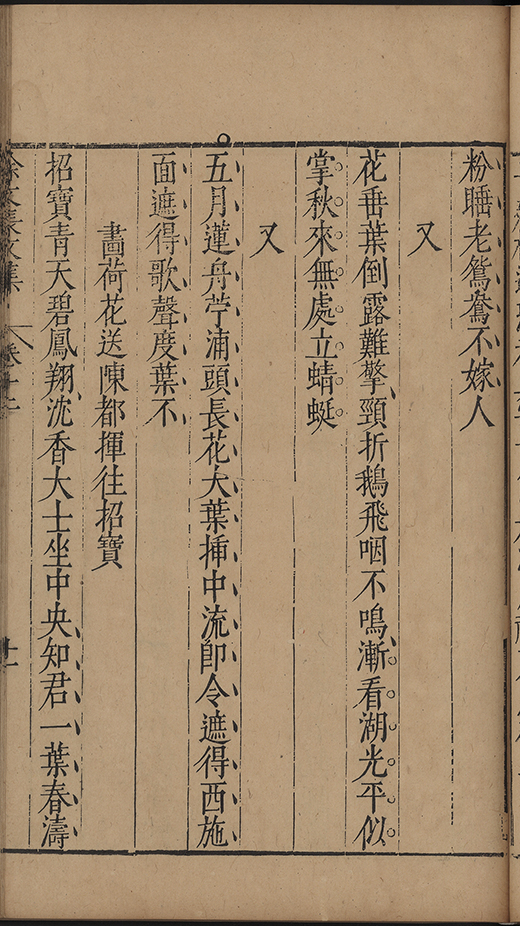 粉睡老鴛鴦不嫁人
又
花垂葉倒露難擎頸折鵝飛咽不鳴漸看湖光平似
掌秋來無處立蜻蜓
又
五月蓮舟苧浦頭長花大葉揷中流卽令遮得西施
面遮得歌聲度葉不
畵荷花送陳都揮往招寶
招寶靑天碧鳳翔沈香大士坐中央知君一葉春濤
徐文長文集 卷十二 十一